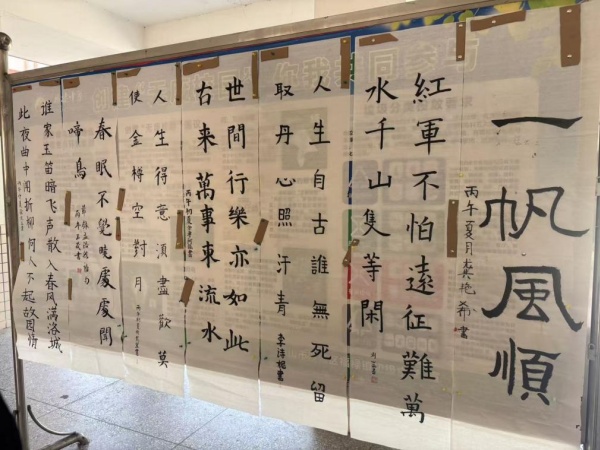 一帆風順
丙午夏月龚艳希書
紅軍不怕遠征難萬
水千山隻等閑
人生自古誰無死留
取丹心照汗青
世間行樂亦如此
古来萬事東流水
人生得意須盡歡莫
使金樽空對月
春眠不覺曉處處聞
啼鳥
谁家玉笛暗飞声散入春风满洛城
此夜曲中闻折柳何人不起故园情